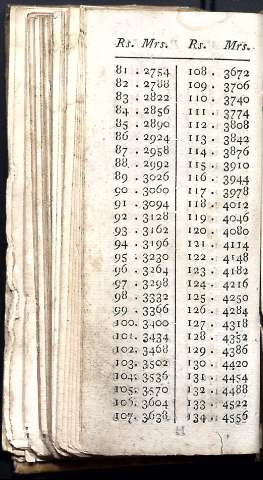 Rs. Mrs. Rs. Mrs.
81 . 2754 108 . 3672
82 . 2788 109 . 3706
83 . 2822 110 . 3740
84 . 2856 111 . 3774
85 . 2890 112 . 3808
86 . 2924 113 . 3842
87 . 2958 114 . 3876
88 . 2992 115 . 3910
89 . 3026 116 . 3944
90 . 3060 117 . 3978
91 . 3094 118 . 4012
92 . 3128 119 . 4046
93 . 3162 120 . 4080
94 . 3196 121 . 4114
95 . 3230 122 . 4148
96 . 3264 123 . 4182
97 . 3298 124 . 4216
98 . 3332 125 . 4250
99 . 3366 126 . 4284
100. 3400 127 . 4318
101. 3434 128 . 4352
102. 3468 129 . 4386
103. 3502 130 . 4420
104. 3536 131 . 4454
105. 3570 132 . 4488
106. 3604 133 . 4522
107. 3638 134 . 4556